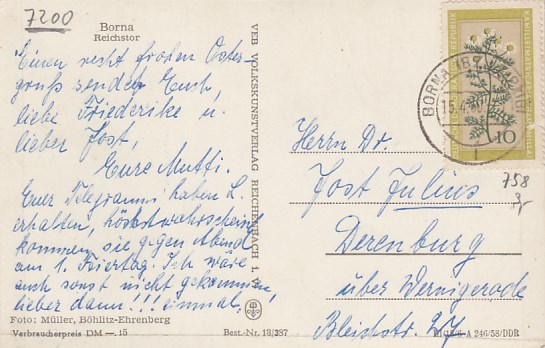 7200
Borna
Reichstor
Einen recht frohen Oster-
gruß sendet Euch,
liebe Friederike u.
lieber Jost,
Eure Mutti.
Euer Telegramm haben L.
erhalten, höchstwahrscheinl.
kommen sie gegen Abend
am 1. Feiertag. Ich wäre
auch sonst nicht gekommen,
lieber dann!!! einmal.
Foto: Müller, Böhlitz-Ehrenberg
Verbraucherpreis DM —.15
Best.-Nr. 13/387
VEB VOLKSKUNSTVERLAG REICHENBACH I. V.
BORNA
15.4.
10
758
Herrn Dr.
Jost Julius
Derenburg
über Wernigerode
Bleichstr. 27
A 246/58/DDR